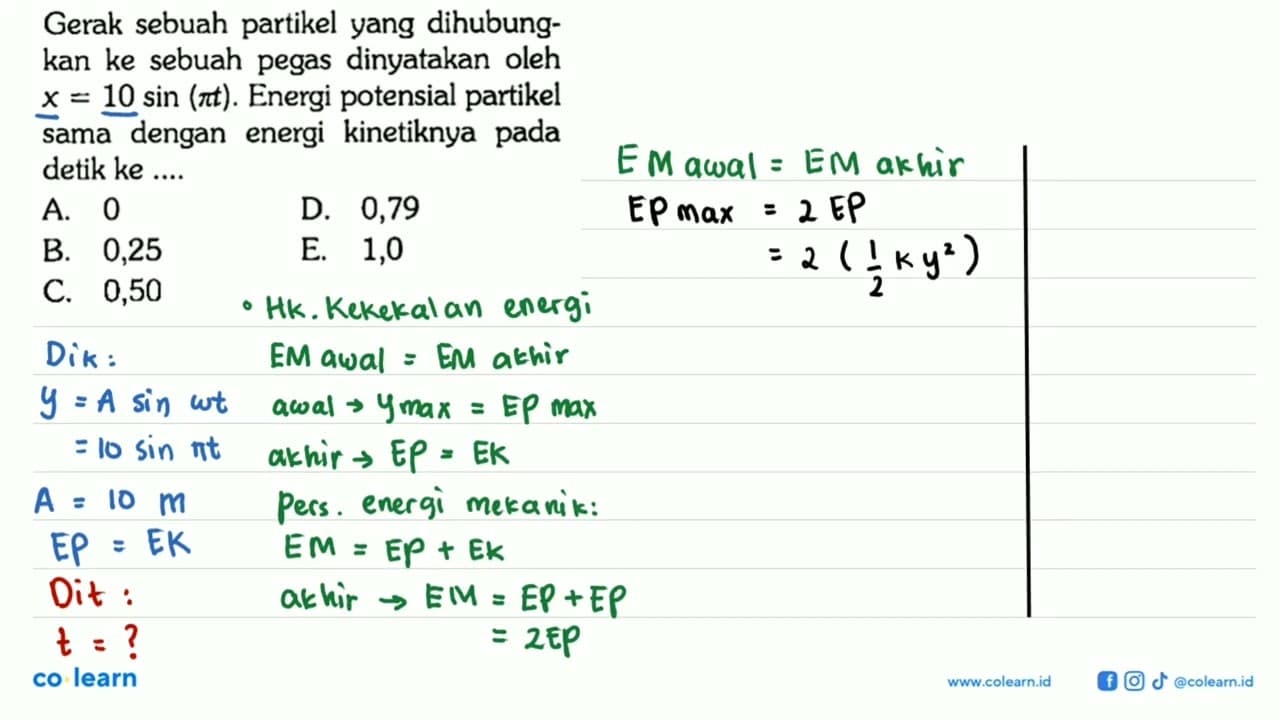 Gerak sebuah partikel yang dihubung-
kan ke sebuah pegas dinyatakan oleh
x = 10 sin (πt). Energi potensial partikel
sama dengan energi kinetiknya pada
detik ke ....
A. 0
D. 0,79
B. 0,25
E. 1,0
C. 0,50
Dik:
y = A sin ωt
= 10 sin πt
A = 10 m
EP = EK
Dit:
t = ?
• Hk. Kekekalan energi
EM awal = EM akhir
awal → y max = EP max
akhir → EP = EK
Pers. energi mekanik:
EM = EP + EK
akhir → EM = EP + EP
= 2EP
EM awal = EM akhir
EP max = 2 EP
= 2 (1/2 k y²)
co·learn
www.colearn.id
@colearn.id